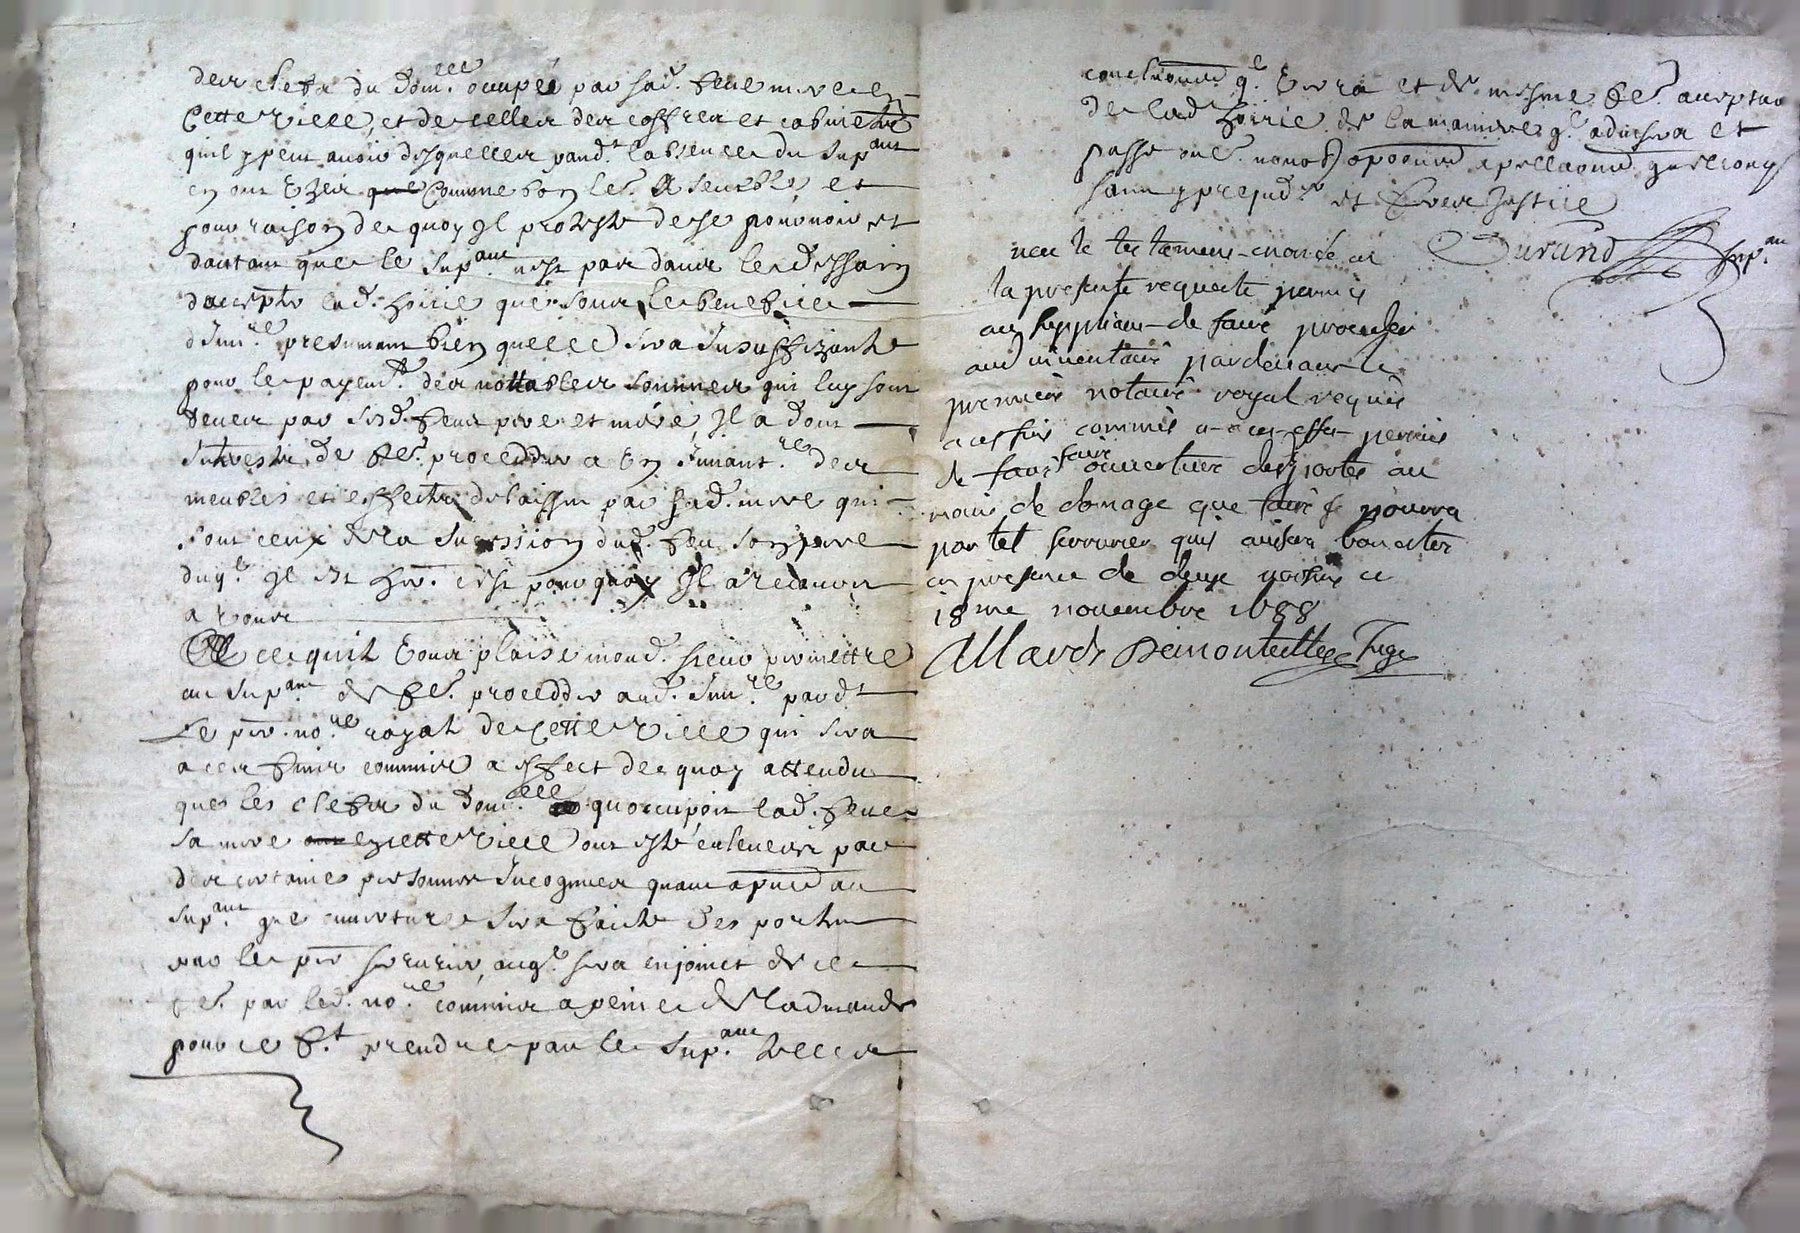 des clefs du dom.lle ocupée par sad. feue mere en
cette ville, et de celles des coffres et cabinets
quil y peut avoir desquelles pand.t labsence du sup.ant
en ont uzer comme bon leur a semblé et
pour raison de quoy il proteste de se pourvoir et
dautant que le sup.ant nest pas dans le dessain
daccepter lad. hoirie que sous le benefice
dinv.re presumant bien quelle sera insuffizante
pour le payem.t des nottables sommes qui luy sont
deues par sesd. feus pere et mere, il a dont
interest de fe. procedder a un invant.re des
meubles et effects delaissés par sad. mere qui
sont ceux de la sucession dud. feu son pere
duq.l il est her. cest pourquoy il a recours
a vous
A ce quil vous plaise mond. sieur permettre
au sup.ant de fe. procedder aud. inv.re pard.t
le pr. no.re royal de cette ville qui sera
a ces fins commis a effect de quoy attendu
que les clefs du dom.lle quocupoit lad. feue
sa mere en cette ville ont esté enlevées par
des certaines personnes incognues
sup.ant que ouverture sera faicte des portes
par le pr. serrurier, auq.l sera enjoinct de ce
fe. par led. no.re commis a peine de ladmande
pour ce f.t prendre par le sup.ant telles
conclusions q.l verra et de mesme fe. acceptaon
de lad. hoirie de la maniere q.l advisera et
passé
sans prejud. et ferés justice
Durand sup.ant
veu le testament enoncé en
la presente requeste permis
au suppliant de faire proceder
aud inventaire pardevant le
premier notaire royal requis
a ces fins commis a cet effet permis
de faire faire ouverture des portes au
moins de domage que faire se pourra
par tel serrurier quil avisera bon estre
en presence de deux voisins ce
18me novembre 1688
Allard Demonteilles Juge